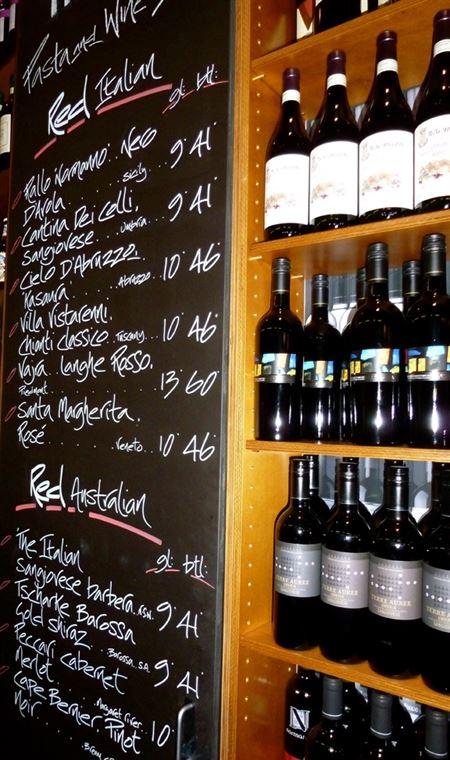 Pasta and Wine
Red Italian
gl: btl:
Fallo Normanno. Nero
D'Avola Sicily. 9 41
Cantina Dei Colli.
Sangiovese. Umbria. 9 41
Cielo D'Abruzzo.
Abruzzo. 10 46
Villa Vistarenni
Chianti Classico. Tuscany. 10 46
Vajra. Langhe Rosso.
Piedmont. 13 60
Santa Margherita.
Rosé Veneto. 10 46
Red Australian
gl: btl:
The Italian
Sangiovese barbera. 9 41
Tscharke Barossa
Gold Shiraz Barossa S.A. 9 41
Peccari Cabernet
Merlot Margaret River 9 41
Cape Bernier Pinot
Noir 10
TERRE AUREE
N